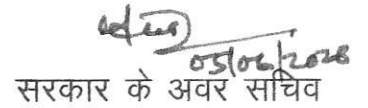 05/06/2026
सरकार के अवर सचिव